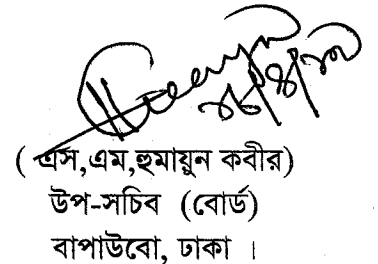 ( এস,এম,হুমায়ুন কবীর)
উপ-সচিব (বোর্ড)
বাপাউবো, ঢাকা ।